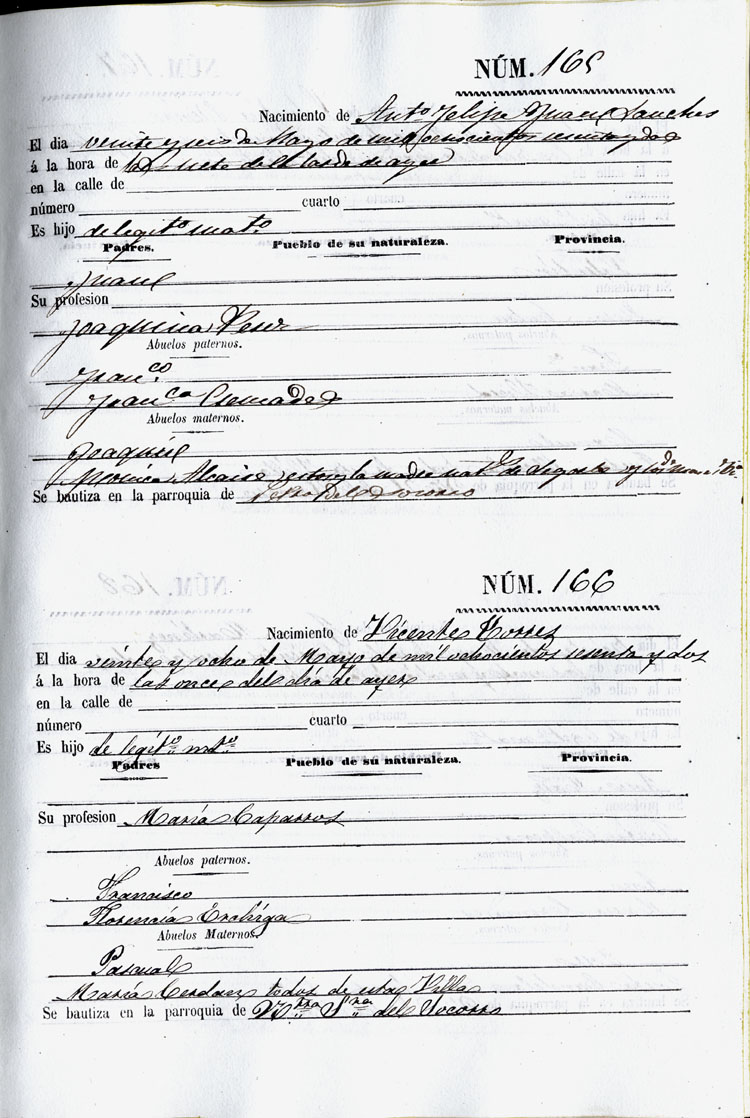 NÚM. 165
Nacimiento de Antº Felipe Juan Sanches
El dia veinte y seis de Mayo de mil ochocientos sesenta y dos
á la hora de las siete de la tarde de ayer
en la calle de
número cuarto
Es hijo de legitº matº
Padres. Pueblo de su naturaleza. Provincia.
Juan
Su profesion
Joaquina Perez
Abuelos paternos.
Franco
Franca
Abuelos maternos.
Joaquin
Monica y la madre
Se bautiza en la parroquia de del Socorro
NÚM. 166
Nacimiento de Vicente Torres
El dia veinte y ocho de Mayo de mil ochocientos sesenta y dos
á la hora de las once del dia de ayer
en la calle de
número cuarto
Es hijo de legítº mtº
Padres Pueblo de su naturaleza. Provincia.
Su profesion María Caparros
Abuelos paternos.
Francisco
Florencia
Abuelos Maternos.
Pascual
María Cerdan todos de esta Villa
Se bautiza en la parroquia de Ntra Sra del Socorro